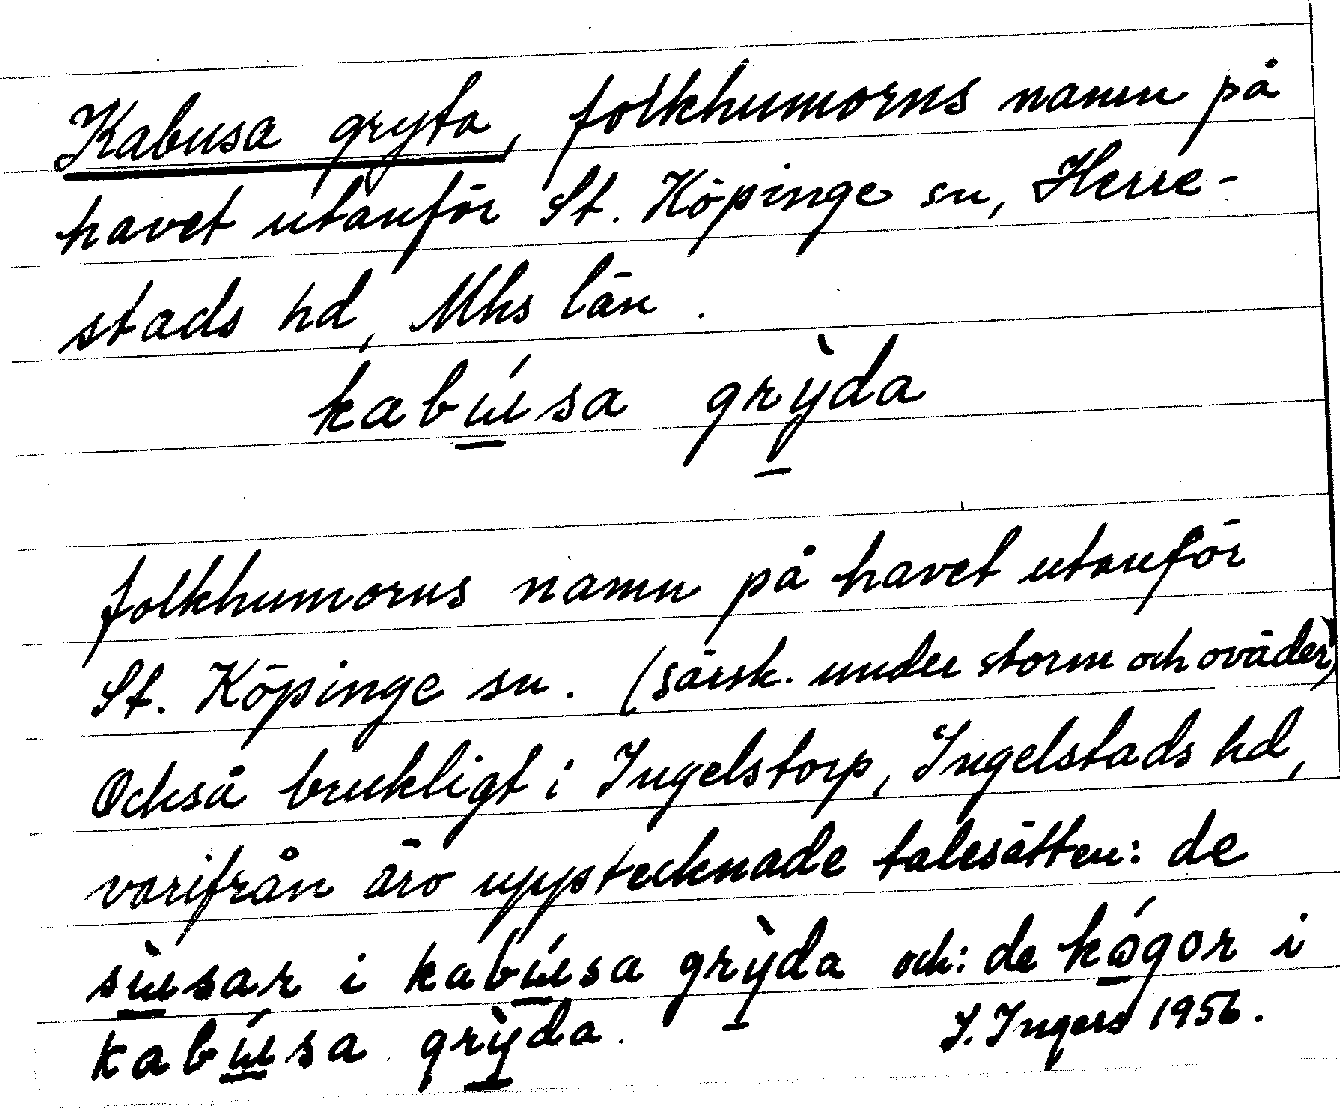 Kabusa gryta, folkhumorns namn på
havet utanför St. Köpinge sn, Herre-
stads hd, Mhs län.
kabúsa grỳda
folkhumorns namn på havet utanför
St. Köpinge sn. (särsk. under storm och oväder)
Också brukligt i Ingelstorp, Ingelstads hd,
varifrån äro upptecknade talesätten: de
sùsar i kabúsa grỳda och: de kógor i
kabúsa grỳda. I. Ingers 1956.